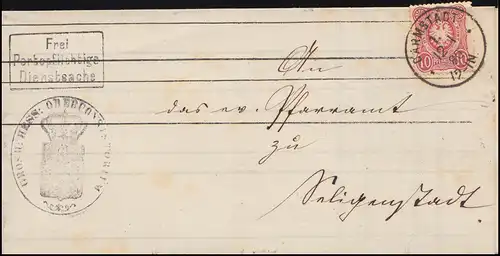 Frei
Portopflichtige
Dienstsache
DARMSTADT
12-1N.
10
10
An
das ev. Pfarramt
zu
Seligenstadt
GROSH: HESS: OBERCONSISTORIUM